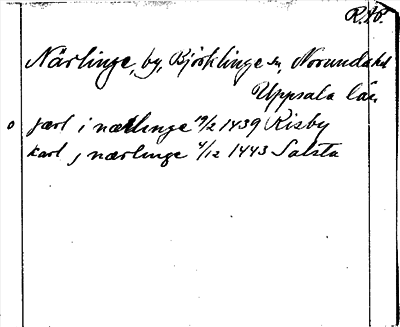 R.10.
Närlinge, by, Björklinge sn, Norunda hd
Uppsala län.
o jærl i nærlinge 19/2 1439 Risby
karl j nærlinge 4/12 1443 Salsta